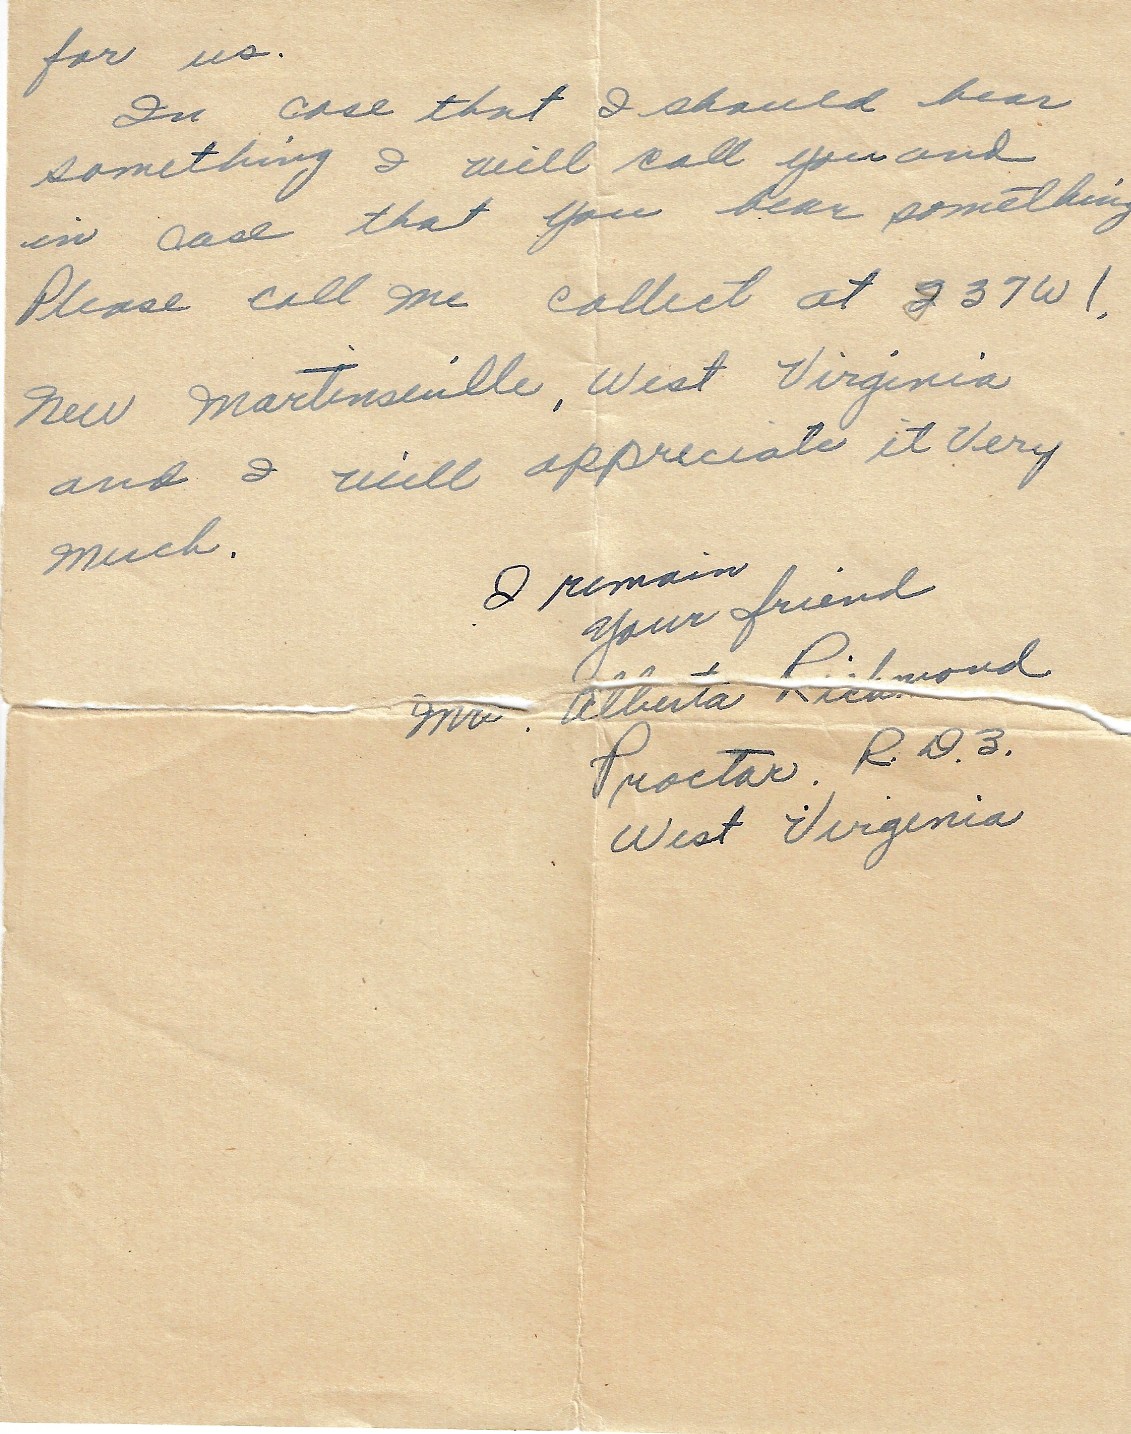 for us.
In case that I should hear
something I will call you and
in case that you hear something
Please call me collect at 237W1,
New Martinsville, West Virginia
and I will appreciate it Very
much.
I remain
Your friend
Mrs. Alberta Richmond
Proctor. R.D.3.
West Virginia